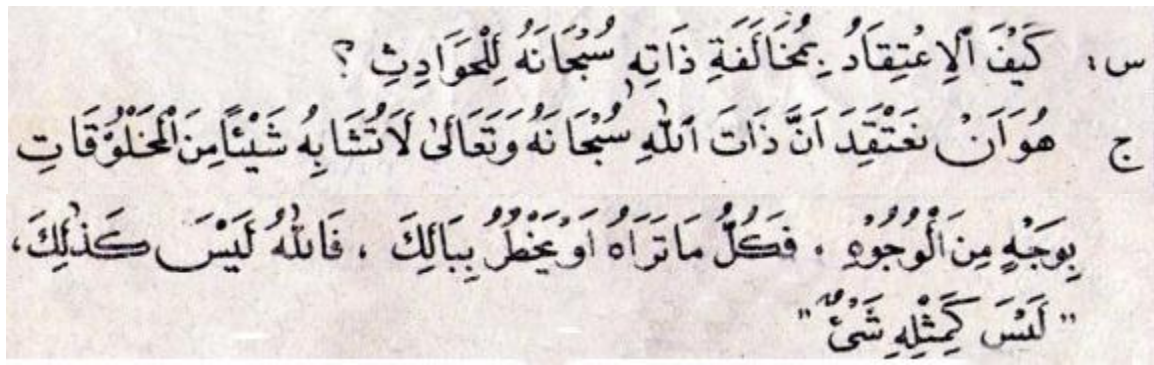 س: كَيْفَ ٱلِاعْتِقَادُ بِمُخَالَفَةِ ذَاتِهِ سُبْحَانَهُ لِلْحَوَادِثِ ؟
ج هُوَ اَنْ نَعْتَقِدَ اَنَّ ذَاتَ ٱللّٰهِ سُبْحَانَهُ وَتَعَالَىٰ لَاتُشَابِهُ شَيْئًا مِنَ ٱلْمَخْلُوْقَاتِ
بِوَجْهٍ مِنَ ٱلْوُجُوْهِ ، فَكُلُّ مَا تَرَاهُ اَوْ يَخْطُرُ بِبَالِكَ ، فَاللّٰهُ لَيْسَ كَذٰلِكَ،
" لَيْسَ كَمِثْلِهِ شَيْءٌ "